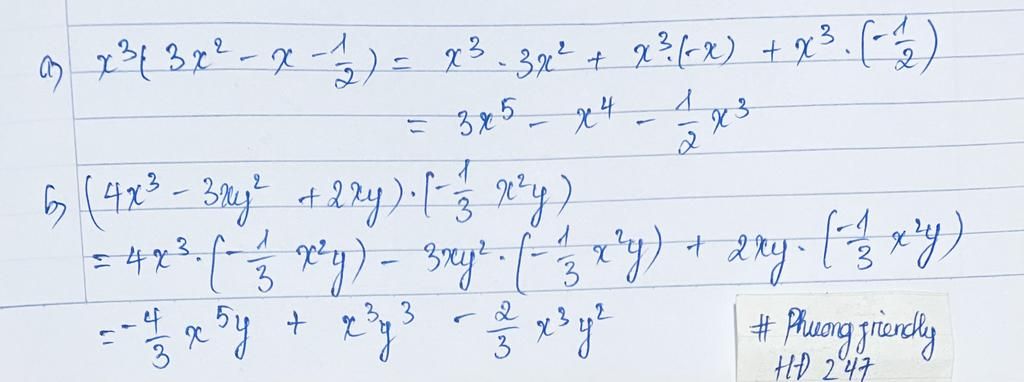 a) x³( 3x² - x - 1/2 ) = x³ · 3x² + x³·(-x) + x³ · (-1/2)
= 3x⁵ - x⁴ - 1/2 x³
b) (4x³ - 3xy² + 2xy)·(-1/3 x²y)
= 4x³·(-1/3 x²y) - 3xy²·(-1/3 x²y) + 2xy·(-1/3 x²y)
= -4/3 x⁵y + x³y³ - 2/3 x³y²
# Phuong friendly
HD 247